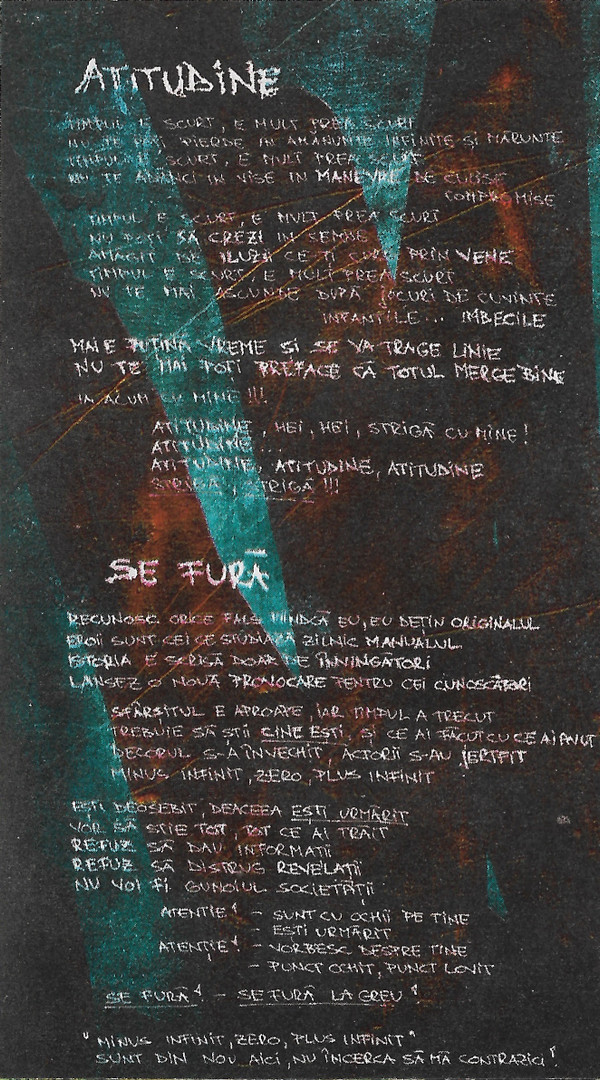 ATITUDINE
TIMPUL E SCURT, E MULT PREA SCURT
NU TE POȚI PIERDE IN AMĂNUNTE INFINITE ȘI MĂRUNTE
TIMPUL E SCURT, E MULT PREA SCURT
NU TE ARUNCI IN VISE IN MANEVRE DE CULISE
COMPROMISE
TIMPUL E SCURT, E MULT PREA SCURT
NU POȚI SĂ CREZI IN SEMNE
AMĂGIT DE ILUZII CE-ȚI CURG PRIN VENE
TIMPUL E SCURT, E MULT PREA SCURT
NU TE MAI ASCUNDE DUPĂ JOCURI DE CUVINTE
INFANTILE... IMBECILE
MAI E PUȚINĂ VREME SI SE VA TRAGE LINIE
NU TE MAI POȚI PREFACE CĂ TOTUL MERGE BINE
IA ACUM CU MINE !!!
ATITUDINE, HEI, HEI, STRIGĂ CU MINE!
ATITUDINE...
ATITUDINE, ATITUDINE, ATITUDINE
STRIGĂ, STRIGĂ !!!
SE FURĂ
RECUNOSC ORICE FALS FIINDCĂ EU, EU DEȚIN ORIGINALUL
EROII SUNT CEI CE STUDIAZĂ ZILNIC MANUALUL
ISTORIA E SCRISĂ DOAR DE ÎNVINGĂTORI
LANSEZ O NOUĂ PROVOCARE PENTRU CEI CUNOSCĂTORI
SFÂRȘITUL E APROAPE, IAR TIMPUL A TRECUT
TREBUIE SĂ STII CINE EȘTI, ȘI CE AI FĂCUT CU CE AI AVUT
DECORUL S-A ÎNVECHIT, ACTORII S-AU JERTFIT
MINUS INFINIT, ZERO, PLUS INFINIT
EȘTI DEOSEBIT, DEACEEA EȘTI URMĂRIT
VOR SĂ STIE TOT, TOT CE AI TRĂIT
REFUZ SĂ DAU INFORMAȚII
REFUZ SĂ DISTRUG REVELAȚII
NU VOI FI GUNOIUL SOCIETĂȚII
ATENȚIE! - SUNT CU OCHII PE TINE
- EȘTI URMĂRIT
ATENȚIE! - VORBESC DESPRE TINE
- PUNCT OCHIT, PUNCT LOVIT
SE FURĂ! - SE FURĂ LA GREU!
"MINUS INFINIT, ZERO, PLUS INFINIT"
SUNT DIN NOU AICI, NU ÎNCERCA SĂ MĂ CONTRAZICI!